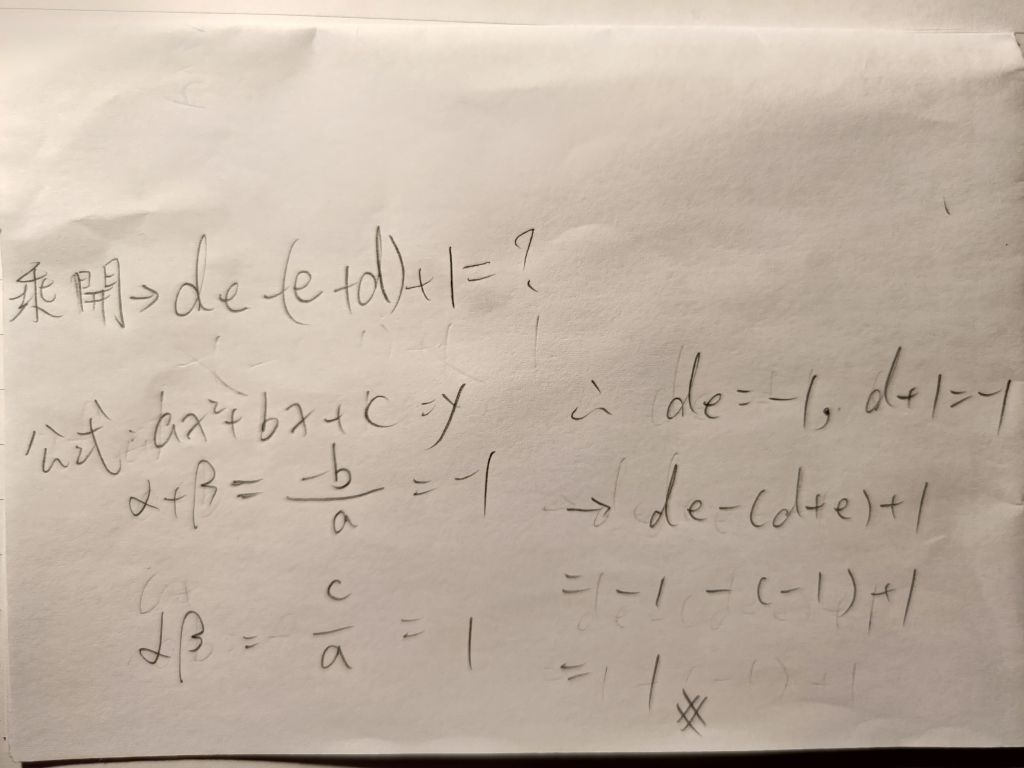 乘開→de-(e+d)+1=?
公式:ax²+bx+c=y
α+β=-b/a=-1
αβ=c/a=1
∴ de=-1, d+1=-1
→ de-(d+e)+1
=-1-(-1)+1
=1